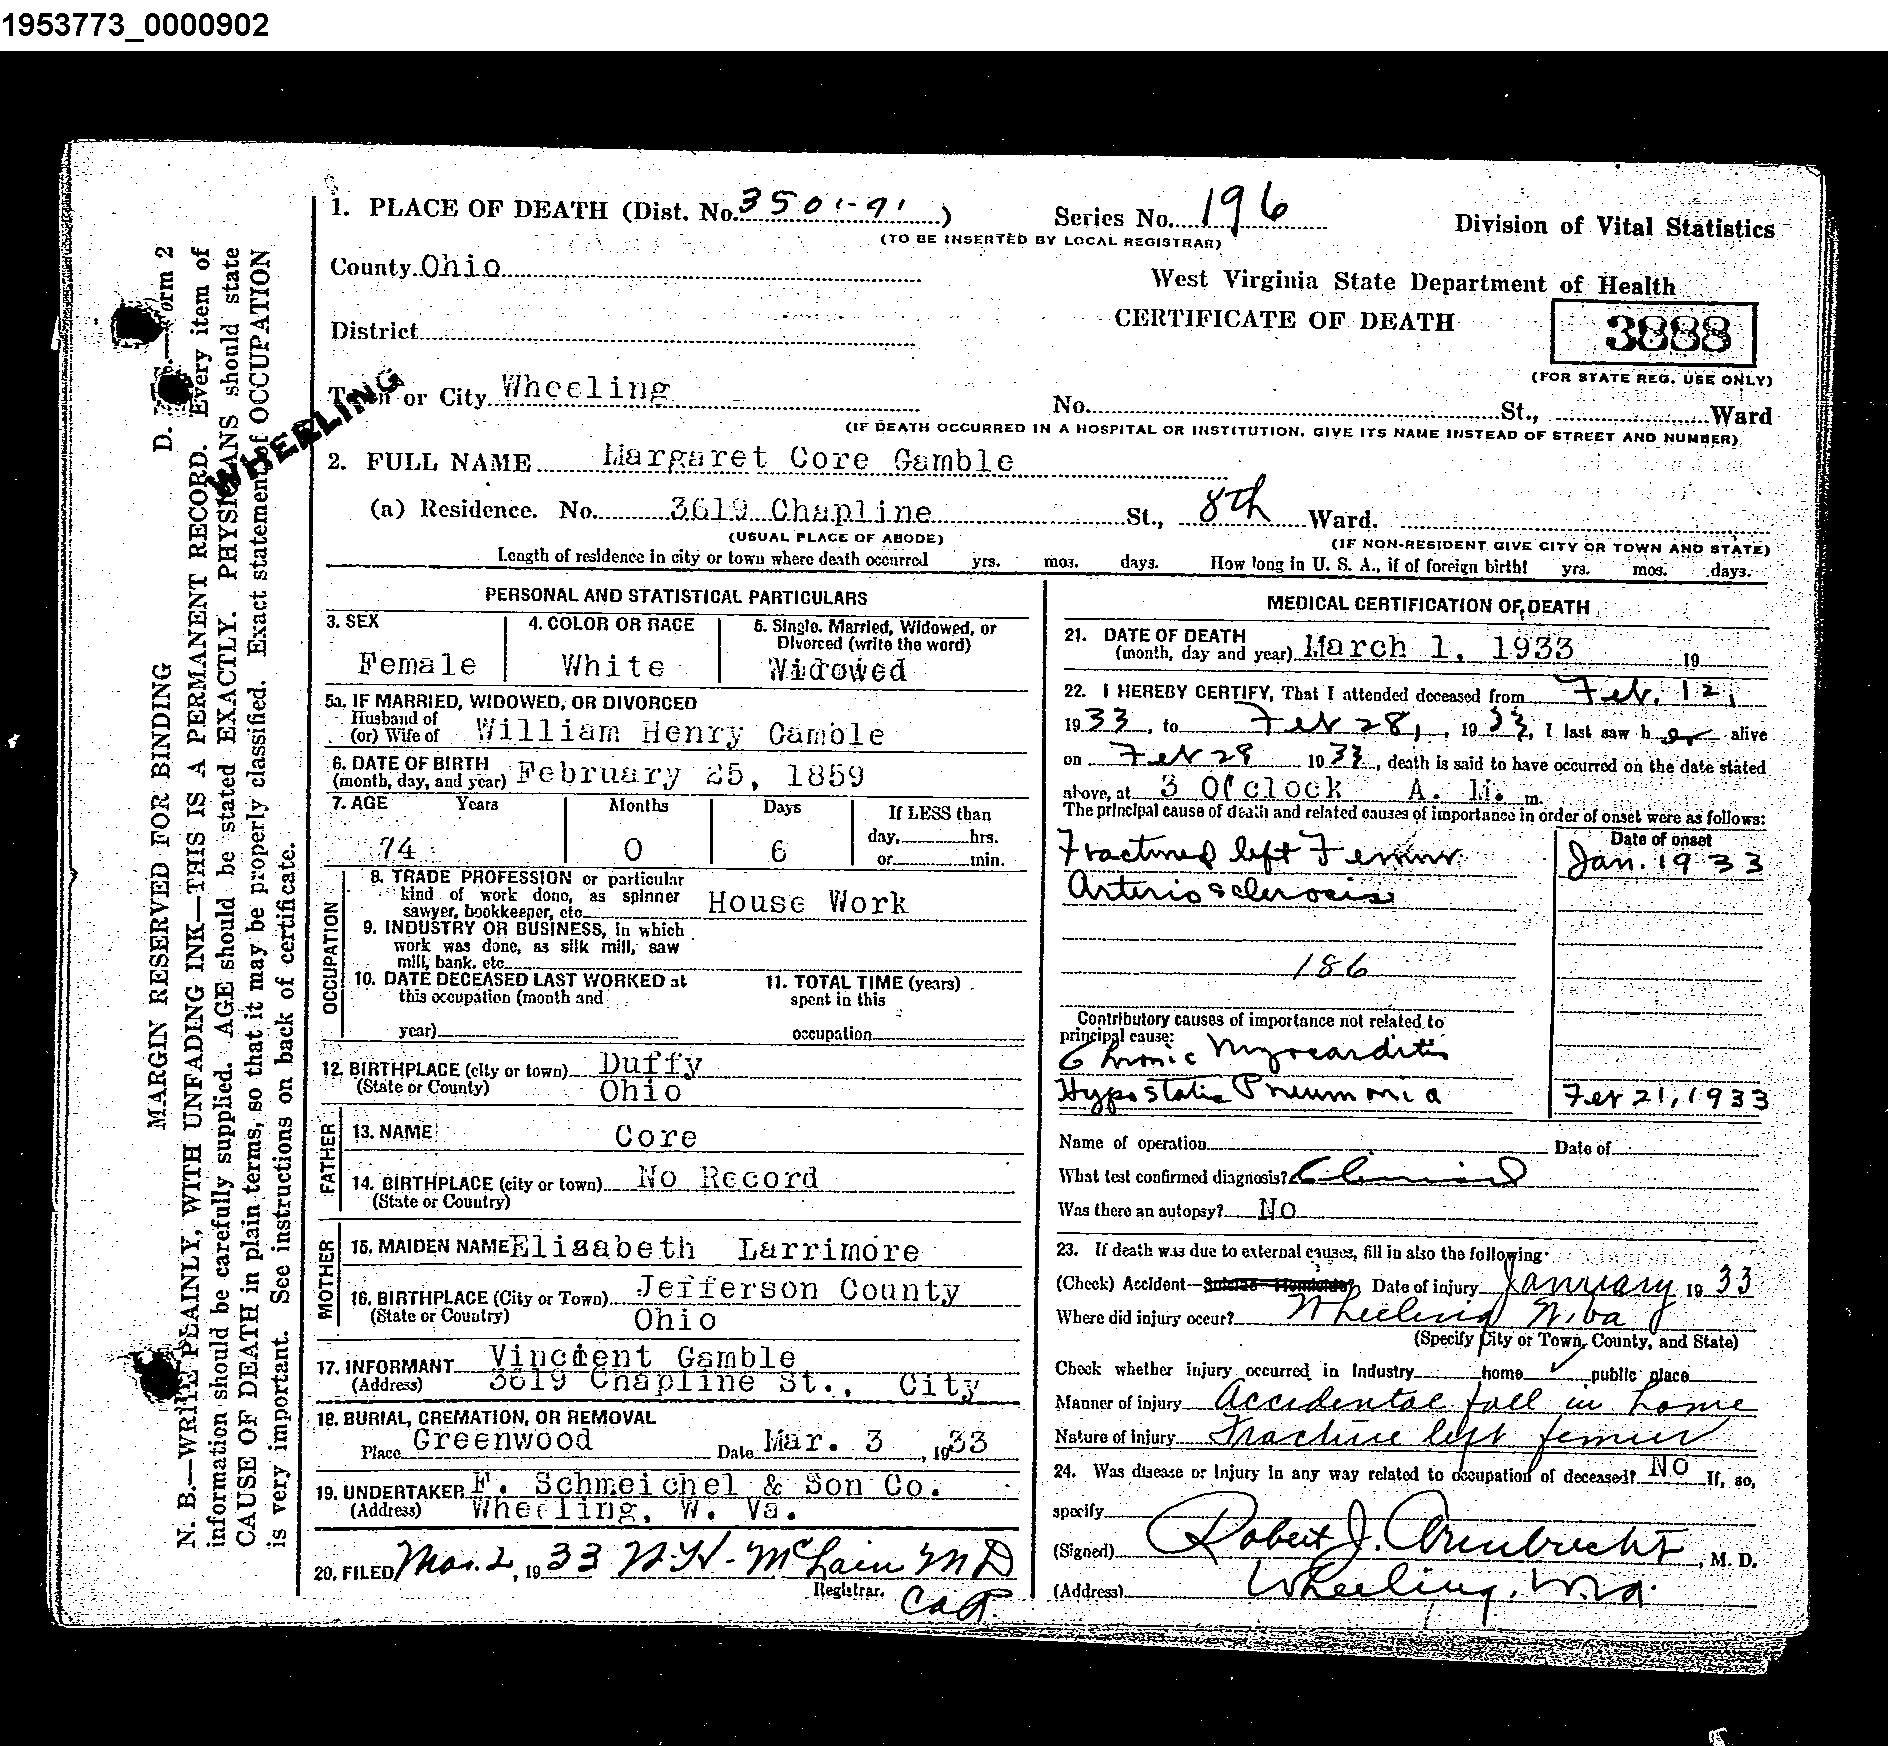 1953773_0000902
1. PLACE OF DEATH (Dist. No. 3501-91)
Series No. 196
Division of Vital Statistics
(TO BE INSERTED BY LOCAL REGISTRAR)
County Ohio
West Virginia State Department of Health
CERTIFICATE OF DEATH
3888
(FOR STATE REG. USE ONLY)
District
Town or City Wheeling
WHEELING
No. St., Ward
(IF DEATH OCCURRED IN A HOSPITAL OR INSTITUTION, GIVE ITS NAME INSTEAD OF STREET AND NUMBER)
2. FULL NAME Margaret Core Gamble
(a) Residence. No. 3619 Chapline St., 8th Ward.
(USUAL PLACE OF ABODE)
(IF NON-RESIDENT GIVE CITY OR TOWN AND STATE)
Length of residence in city or town where death occurred yrs. mos. days. How long in U. S. A., if of foreign birth? yrs. mos. days.
PERSONAL AND STATISTICAL PARTICULARS
3. SEX
Female
4. COLOR OR RACE
White
5. Single, Married, Widowed, or
Divorced (write the word)
Widowed
5a. IF MARRIED, WIDOWED, OR DIVORCED
Husband of
(or) Wife of William Henry Gamble
6. DATE OF BIRTH
(month, day, and year) February 25, 1859
7. AGE Years Months Days If LESS than
74 0 6 day, hrs.
or min.
OCCUPATION
8. TRADE PROFESSION or particular
kind of work done, as spinner
sawyer, bookkeeper, etc. House Work
9. INDUSTRY OR BUSINESS, in which
work was done, as silk mill, saw
mill, bank, etc.
10. DATE DECEASED LAST WORKED at
this occupation (month and
year)
11. TOTAL TIME (years)
spent in this
occupation
12. BIRTHPLACE (city or town) Duffy
(State or County) Ohio
FATHER
13. NAME Core
14. BIRTHPLACE (city or town) No Record
(State or Country)
MOTHER
15. MAIDEN NAME Elisabeth Larrimore
16. BIRTHPLACE (City or Town) Jefferson County
(State or Country) Ohio
17. INFORMANT Vincient Gamble
(Address) 3619 Chapline St., City
18. BURIAL, CREMATION, OR REMOVAL
Place Greenwood Date Mar. 3, 1933
19. UNDERTAKER F. Schmeichel & Son Co.
(Address) Wheeling, W. Va.
20. FILED Mar. 2, 1933 W. H. McLain MD
Registrar.
MEDICAL CERTIFICATION OF DEATH
21. DATE OF DEATH
(month, day and year) March 1, 1933 19
22. I HEREBY CERTIFY, That I attended deceased from Feb. 12,
1933, to Feb 28, 1933, I last saw her alive
on Feb 28 1933, death is said to have occurred on the date stated
above, at 3 O'clock A. M. m.
The principal cause of death and related causes of importance in order of onset were as follows:
Date of onset
Fractured left Femur. Jan. 1933
Arteriosclerosis
186
Contributory causes of importance not related to
principal cause:
Chronic Myocarditis
Hypostatic Pneumonia Feb 21, 1933
Name of operation Date of
What test confirmed diagnosis? Clinical
Was there an autopsy? No
23. If death was due to external causes, fill in also the following:
(Check) Accident—Suicide—Homicide? Date of injury January 1933
Where did injury occur? Wheeling W. Va
(Specify City or Town, County, and State)
Check whether injury occurred in Industry home ✓ public place
Manner of injury Accidental fall in home
Nature of injury Fracture left femur
24. Was disease or injury in any way related to occupation of deceased? No If, so,
specify
(Signed) Robert J. Armbrecht, M. D.
(Address) Wheeling, W. Va.
MARGIN RESERVED FOR BINDING
N. B.—WRITE PLAINLY, WITH UNFADING INK—THIS IS A PERMANENT RECORD. Every item of
information should be carefully supplied. AGE should be stated EXACTLY. PHYSICIANS should state
CAUSE OF DEATH in plain terms, so that it may be properly classified. Exact statement of OCCUPATION
is very important. See instructions on back of certificate.